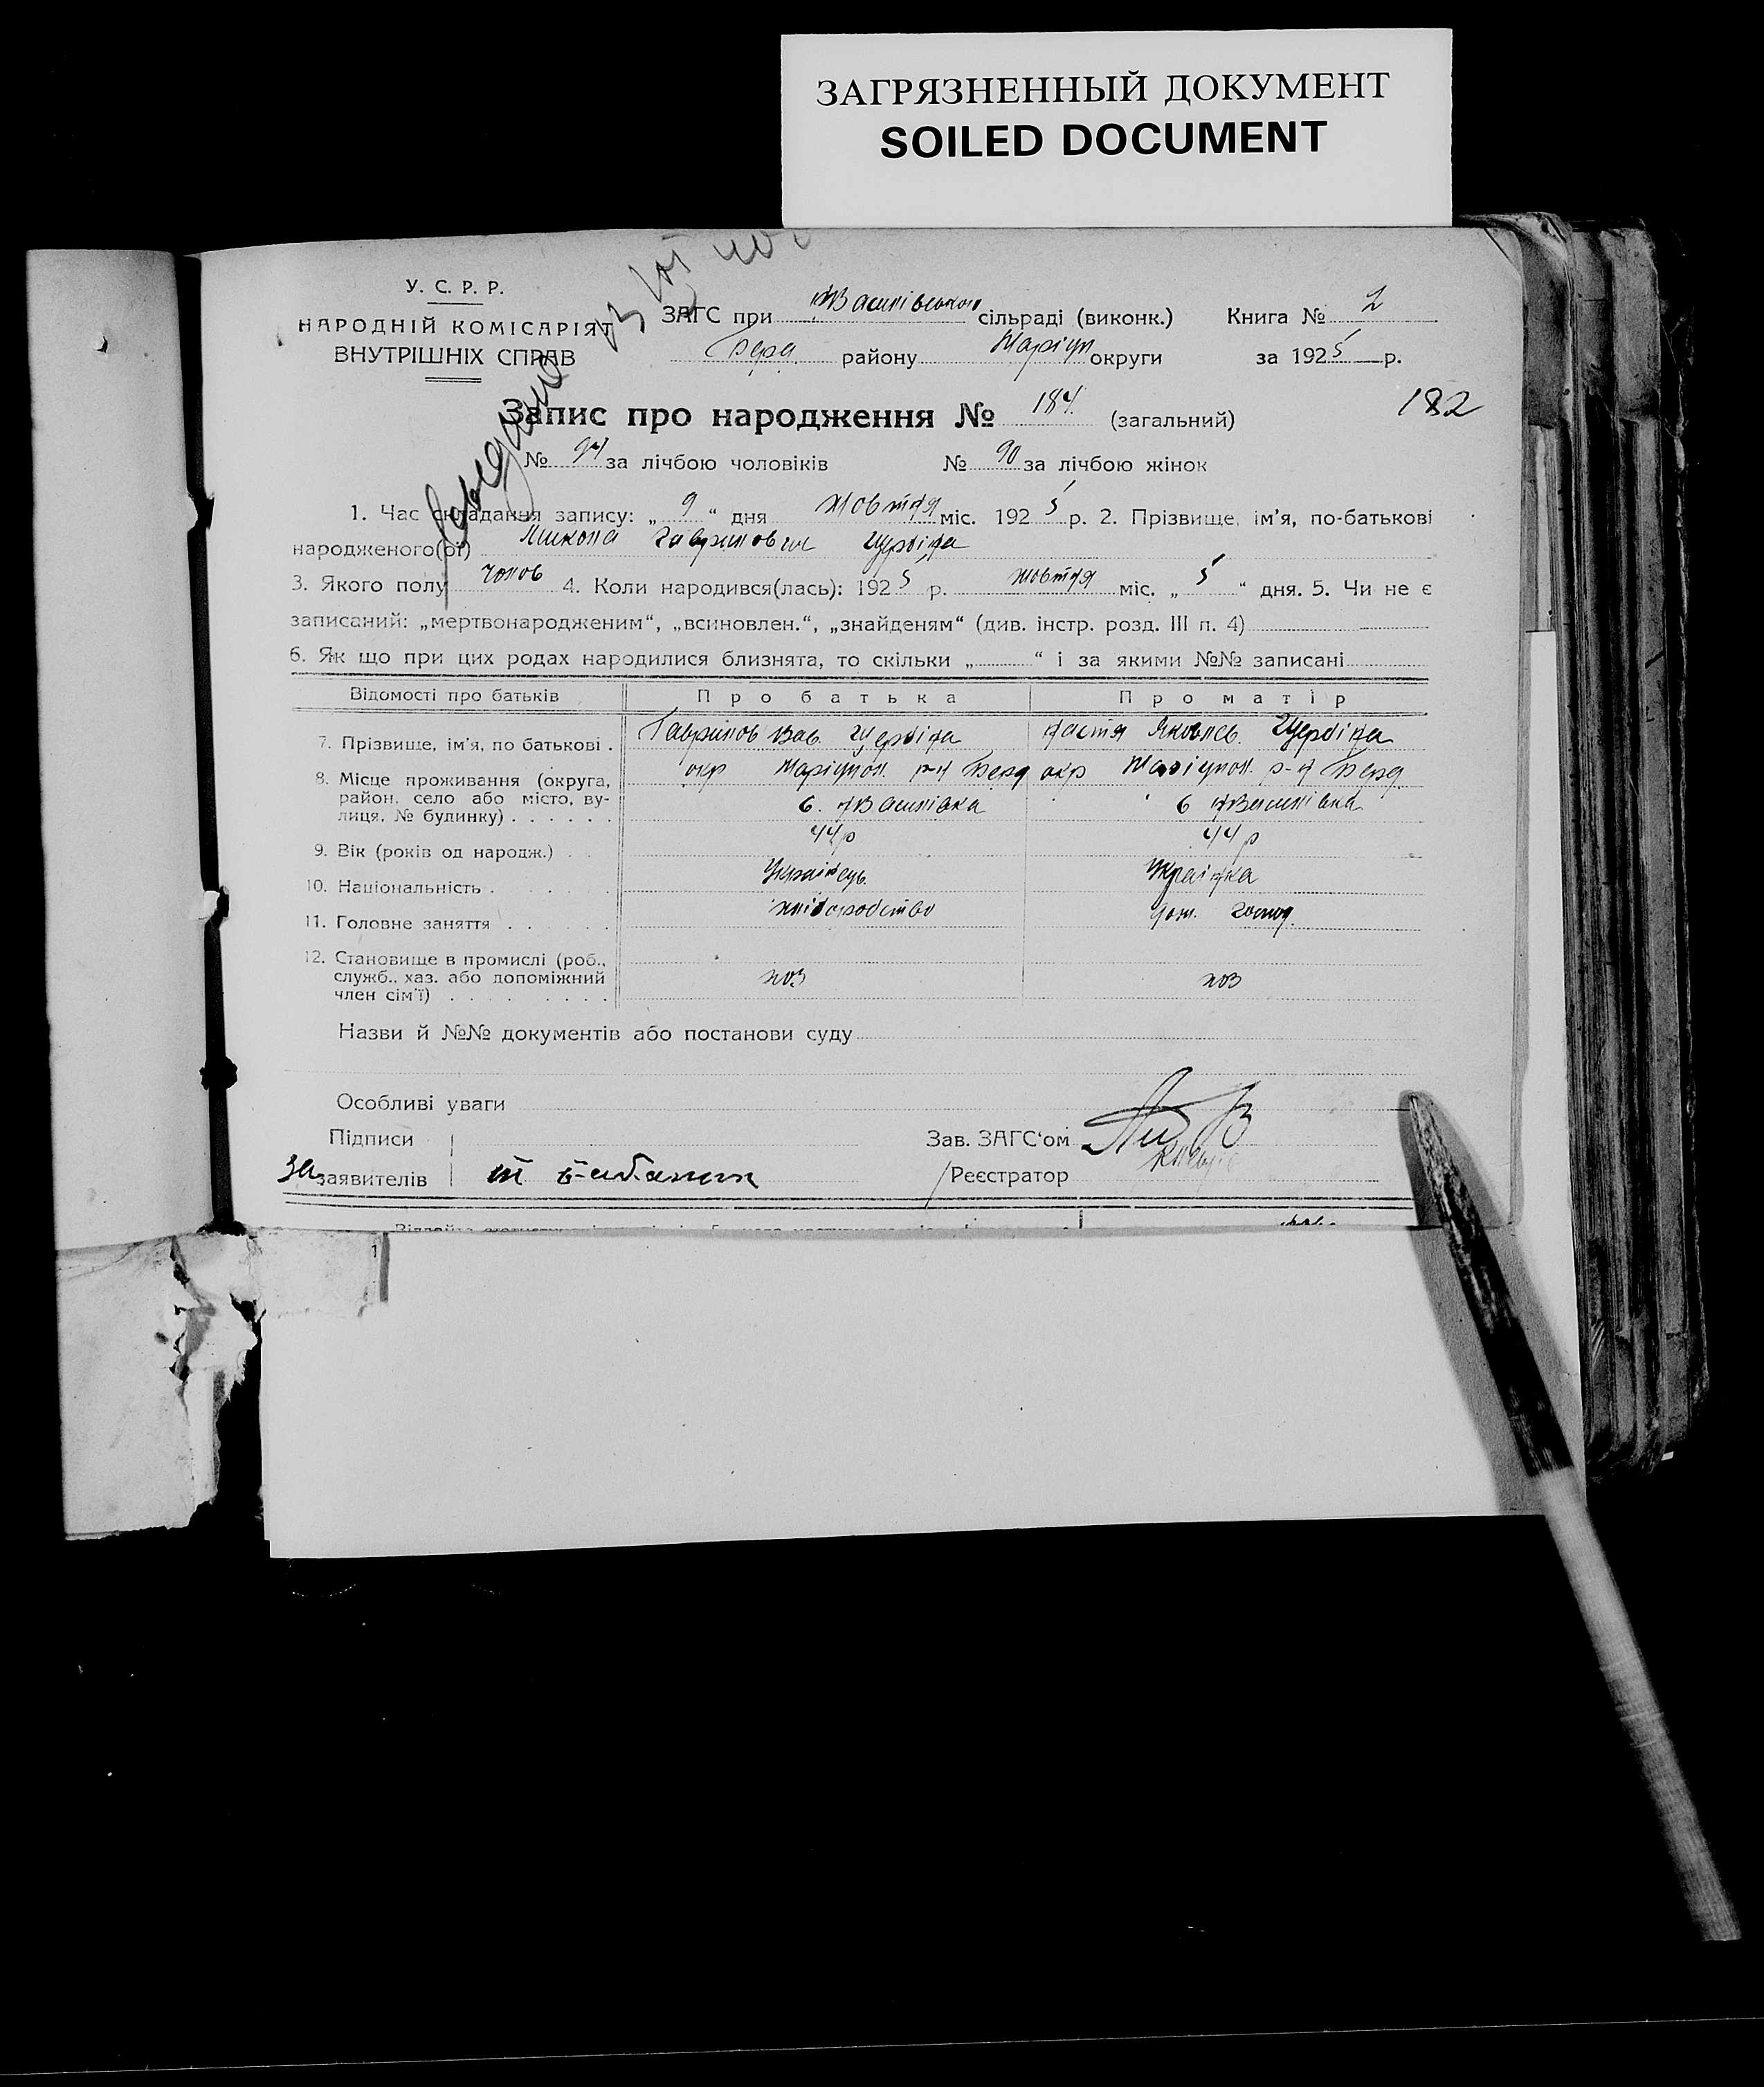 ЗАГРЯЗНЕННЫЙ ДОКУМЕНТ
SOILED DOCUMENT
У. С. Р. Р.
НАРОДНІЙ КОМІСАРІЯТ
ВНУТРІШНІХ СПРАВ
ЗАГС при сільраді (виконк.) Книга № 2
Берд. району Маріуп округи за 1925 р.
Запис про народження № 184. (загальний)
182
№ 94 за лічбою чоловіків № 90 за лічбою жінок
1. Час складання запису: „ 9 “ дня жовтня міс. 1925 р. 2. Прізвище, ім’я, по-батькові
народженого(ої) Микола Гаврилович Щербина
3. Якого полу чолов 4. Коли народився(лась): 1925 р. жовтня міс. „ 5 “ дня. 5. Чи не є
записаний: „мертвонародженим“, „всиновлен.“, „знайденям“ (див. інстр. розд. III п. 4)
6. Як що при цих родах народилися близнята, то скільки „ “ і за якими №№ записані
Відомості про батьків Про батька Про матір
7. Прізвище, ім’я, по батькові . Гаврилов Щербина Настя Яковлев. Щербина
8. Місце проживання (округа, окр Маріупол. р-н Берд окр Маріупол. р-н Берд
район, село або місто, ву-
лиця, № будинку) . . . . . .
9. Вік (років од народж.) . . 44 р 44 р
10. Національність . . . . . . Українець. Українка
11. Головне заняття . . . . . . хліборобство дом. господ.
12. Становище в промислі (роб.,
служб., хаз. або допоміжний хоз хоз
член сім’ї) . . . . . . . . .
Назви й №№ документів або постанови суду
Особливі уваги
Підписи Зав. ЗАГС‘ом
За заявителів Реєстратор